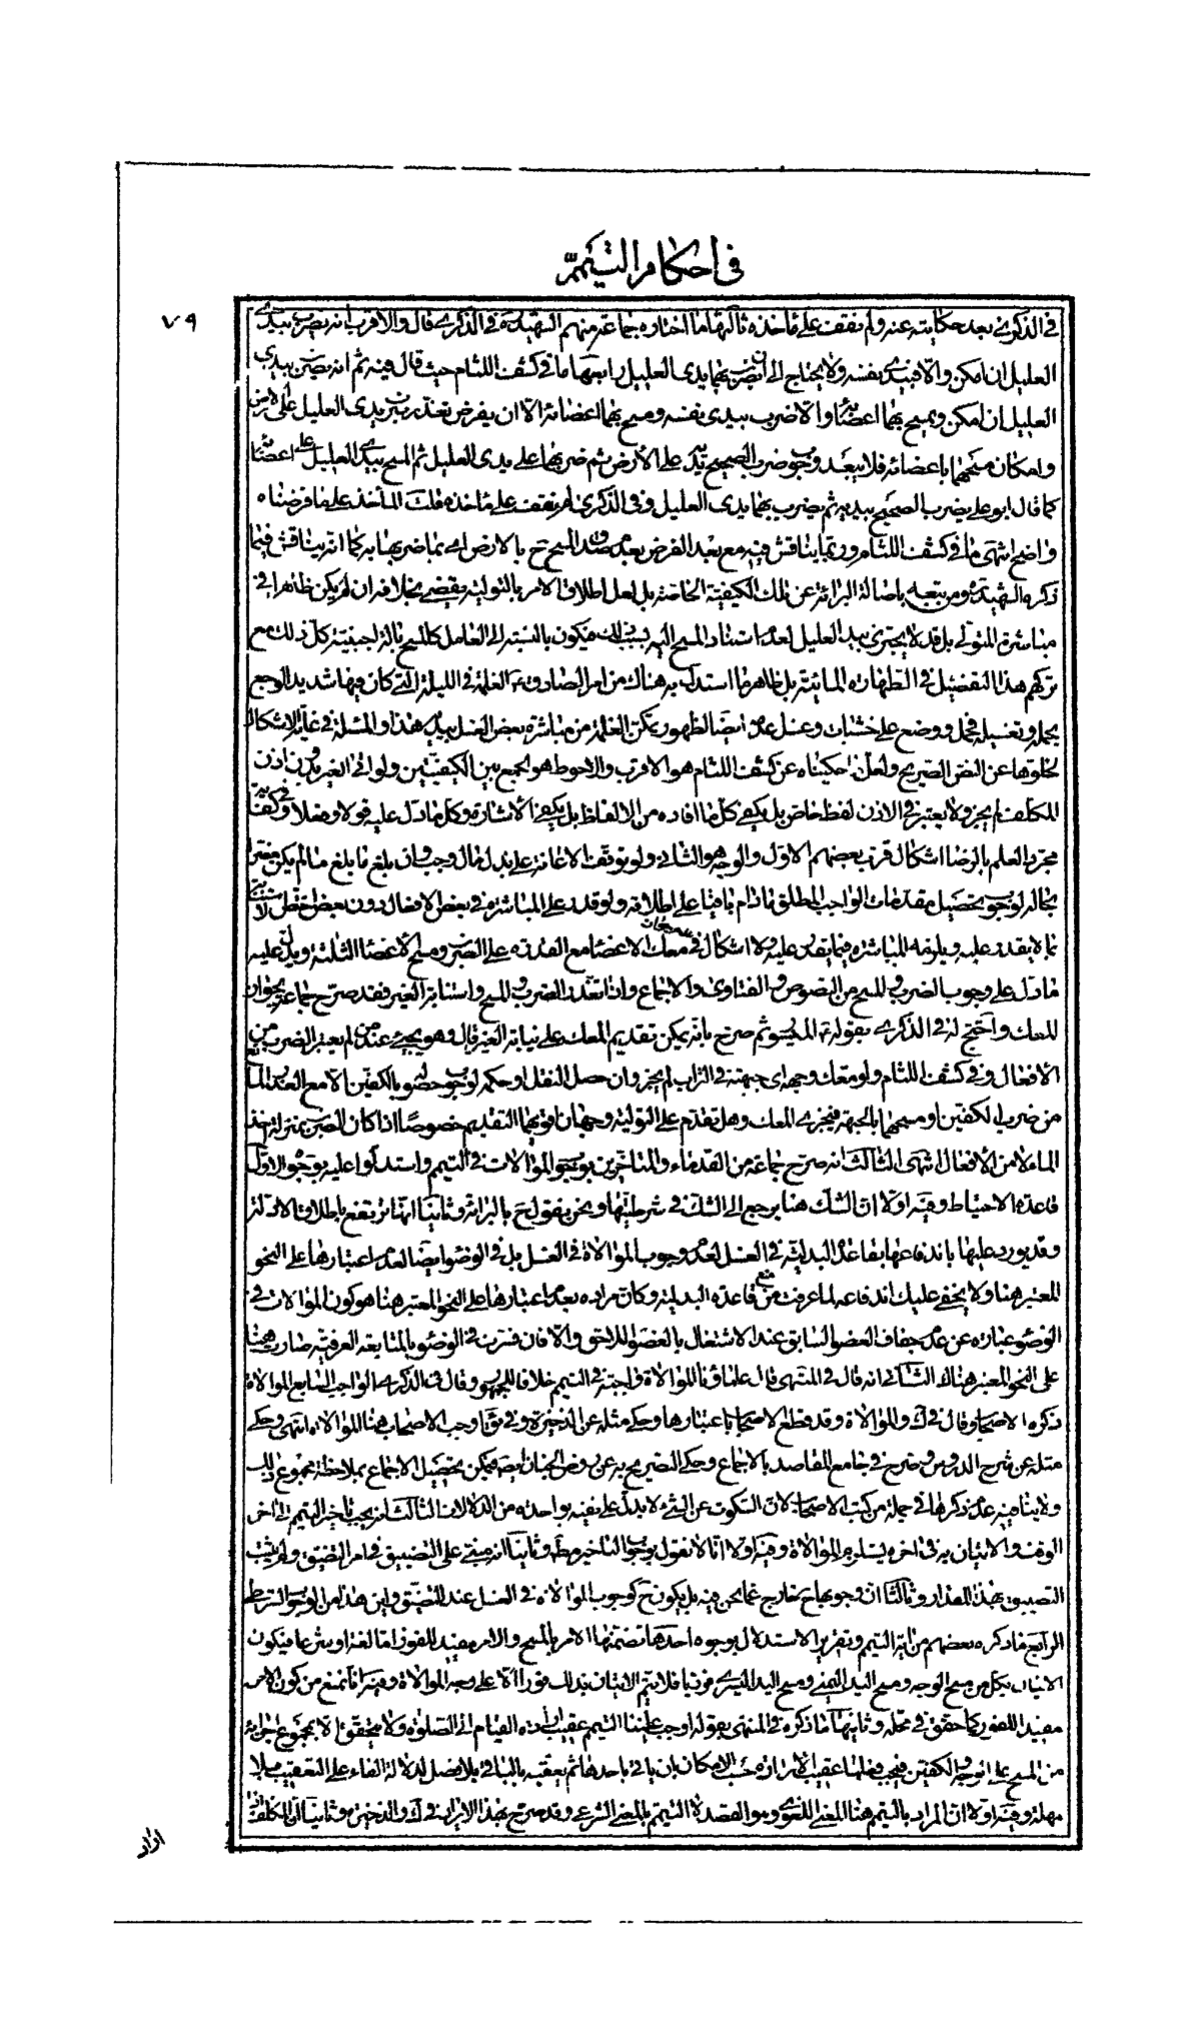 في احكام التيمم
٧٩
في الذكرى بعد حكايته عنه ولم نقف على مأخذه ثالثها ما اختاره جماعة منهم الشهيد في الذكرى قال والاقرب انه يضرب بيدي
العليل ان امكن والا فبيدي نفسه ولا يحتاج الى ان يضرب بهما يدى العليل رابعها ما في كشف اللثام حيث قال فيه ثم انه يضرب بيدي
العليل ان امكن ويمسح بهما اعضائه والا ضرب بيدى نفسه ومسح بهما اعضائه الا ان يفرض تعذر ضرب يدى العليل على الارض
وامكان مسحهما باعضائه فلا يبعد وجوب ضرب الصحيح يديه على الأرض ثم ضربهما على يدى العليل ثم المسح بيدي العليل على اعضائه
كما قال ابو على يضرب الصحيح بيديه ثم يضرب بهما يدى العليل وفى الذكرى لم نقف على مأخذه قلت المأخذ على ما فرضناه
واضح انتهى ما في كشف اللثام وربما يناقش فيه مع بعد الفرض بعدم صدق المسح ح بالارض اى بما ضربها به كما انه يناقش فيما
ذكره الشهيد ومن تبعه باصالة البرائة عن تلك الكيفية الخاصة بل لعل اطلاق الامر بالتولية يقضى بخلافه ان لم يكن ظاهرا في
مباشرة المتولي بل قد لا يجتزى بيد العليل لعدم استناد المسح اليه بسبب ذلك فيكون بالنسبة الى العامل كالمسح بالة اجنبية كل ذلك مع
تركهم هذا التفصيل في الطهارة المائية بل ظاهر ما استدل به هناك من امر الصادق ع الغلمة في الليلة التي كان فيها شديد الوجع
بحمله وتغسيله فحمل ووضع على خشبات وغسل عدم ايضا لظهور تمكن الغلمة من مباشرة بعض الغسل بيده هذا والمسئلة في غاية الاشكال
لخلوها عن النص الصريح ولعل ما حكيناه عن كشف اللثام هو الاقرب والاحوط هو الجمع بين الكيفيتين ولو الى الغير بدون اذن
المكلف لم يجز ولا يعتبر في الاذن لفظ خاص بل يكفى كل ما افاده من الالفاظ بل يكفى الاشارة وكل ما دل عليه قولا وفعلا وفي كفاية
مجرد العلم بالرضا اشكال قرب بعضهم الاول والوجه هو الثاني ولو توقف الاعانة على بذل مال وجب وان بلغ ما بلغ ما لم يكن مضرا
بحاله لوجوب تحصيل مقدمات الواجب المطلق ما دام باقيا على اطلاقه ولو قدر على المباشرة في بعض الافعال دون بعض اختص الاستنابة
بما لا يقدر عليه ويلزمه المباشرة فيما يقدر عليه ولا اشكال في معك الاعضا مع القدرة على الضرب ومسح الاعضا الثلثة ويدل عليه
ما دل على وجوب الضرب والمسح من النصوص والفتاوى والاجماع واذا تعذر الضرب والمسح واستنابة الغير فقد صرح جماعة بجواز
المعك واحتج له في الذكرى بقوله ع الميسور ثم صرح بانه يمكن تقديم المعك على نيابة الغير قال وهو يجيئ عند من لم يعتبر الضرب من
الافعال وفى كشف اللثام ولو معك وجهه اى جبهته في التراب لم يجز وان حصل النقل او حكمه لوجوب حصوله بالكفين الا مع العذر المانع
من ضرب الكفين او مسحهما بالجبهة فيجزى المعك وهل تقدم على التولية وجهان اقويهما التقديم خصوصا اذا كان الضرب بمنزلة اخذ
الماء لا من الافعال انتهى الثالث انه صرح جماعة من القدماء والمتأخرين بوجوب الموالات في التيمم واستدلوا عليه بوجوه الاول
قاعدة الاحتياط وفيه اولا ان الشك هنا يرجع الى الشك في شرطيتها ونحن نقول ح بالبرائة وثانيا انها ترتفع باطلاق الادلة
وقد يورد عليها باندفاعها بقاعدة البدلية في الغسل لعدم وجوب الموالاة في الغسل بل في الوضو ايضا لعدم اعتبارها على النحو
المعتبر هنا ولا يخفى عليك اندفاعه لما عرفت من منع قاعدة البدلية وكان مراده بعدم اعتبارها على النحو المعتبر هنا هو كون الموالات في
الوضوء عبارة عن عدم جفاف العضو السابق عند الاشتغال بالعضو اللاحق والا فان فسرت في الوضوء بالمتابعة العرفية صارت هنا
على النحو المعتبر هناك الثاني انه قال في المنتهى قال علمائنا الموالاة واجبة في التيمم خلافا للجمهور وقال في الذكرى الواجب السابع الموالاة
ذكره الاصحاب وقال في ك والموالاة وقد قطع الاصحاب باعتبارها وحكى مثله عن الذخيرة وفي ق اوجب الاصحاب هنا الموالاة انتهى وحكى
مثله عن شرح الدروس وصرح في جامع المقاصد بالاجماع وحكى التصريح به عن روض الجنان ايضا فيمكن تحصيل الاجماع بملاحظة مجموع ذلك
ولا ينافيه عدم ذكرها في جملة من كتب الاصحاب لان السكوت عن الشئ لا يدل على نفيه بواحدة من الدلالات الثالث انه يجب تأخير التيمم الى اخر
الوقت والاتيان به في اخره يستلزم الموالاة وفيه اولا انا لا نقول بوجوب التأخير مط وثانيا انه مبني على التضييق في امر التضيق ولم يثبت
التضييق بهذا المقدار وثالثا ان وجوبها ح خارج عما نحن فيه بل يكون ح كوجوب الموالاة في الغسل عند التضيق واين هذا من الوجوب الشرطي
الرابع ما ذكره بعضهم من اية التيمم وتقرير الاستدلال بوجوه احدها تضمنها الامر بالمسح والامر مفيد للفور اما لغة او شرعا فيكون
الاتيان بكل من مسح الوجه ومسح اليد اليمنى ومسح اليد اليسرى فوريا فلا يتم الاتيان بذلك فورا الا على وجه الموالاة وفيه انا نمنع من كون الامر
مفيدا للفور كما حقق في محله وثانيها ما ذكره في المنتهى بقوله اوجب علينا التيمم عقيب ارادة القيام الى الصلوة ولا يتحقق الا بمجموع اجزائه
من المسح على الوجه والكفين فيجب فعلها عقيب الارادة حسب الامكان بان ياتي باحدها ثم يعقبه بالباقي بلا فصل لدلالة الفاء على التعقيب بلا
مهلة وفيه اولا ان المراد بالتيمم هنا المعنى اللغوي وهو القصد لا التيمم بالمعنى الشرعي وقد صرح بهذا الايراد في ك والذخيرة وثانيا ان المكلف اذا
اراد